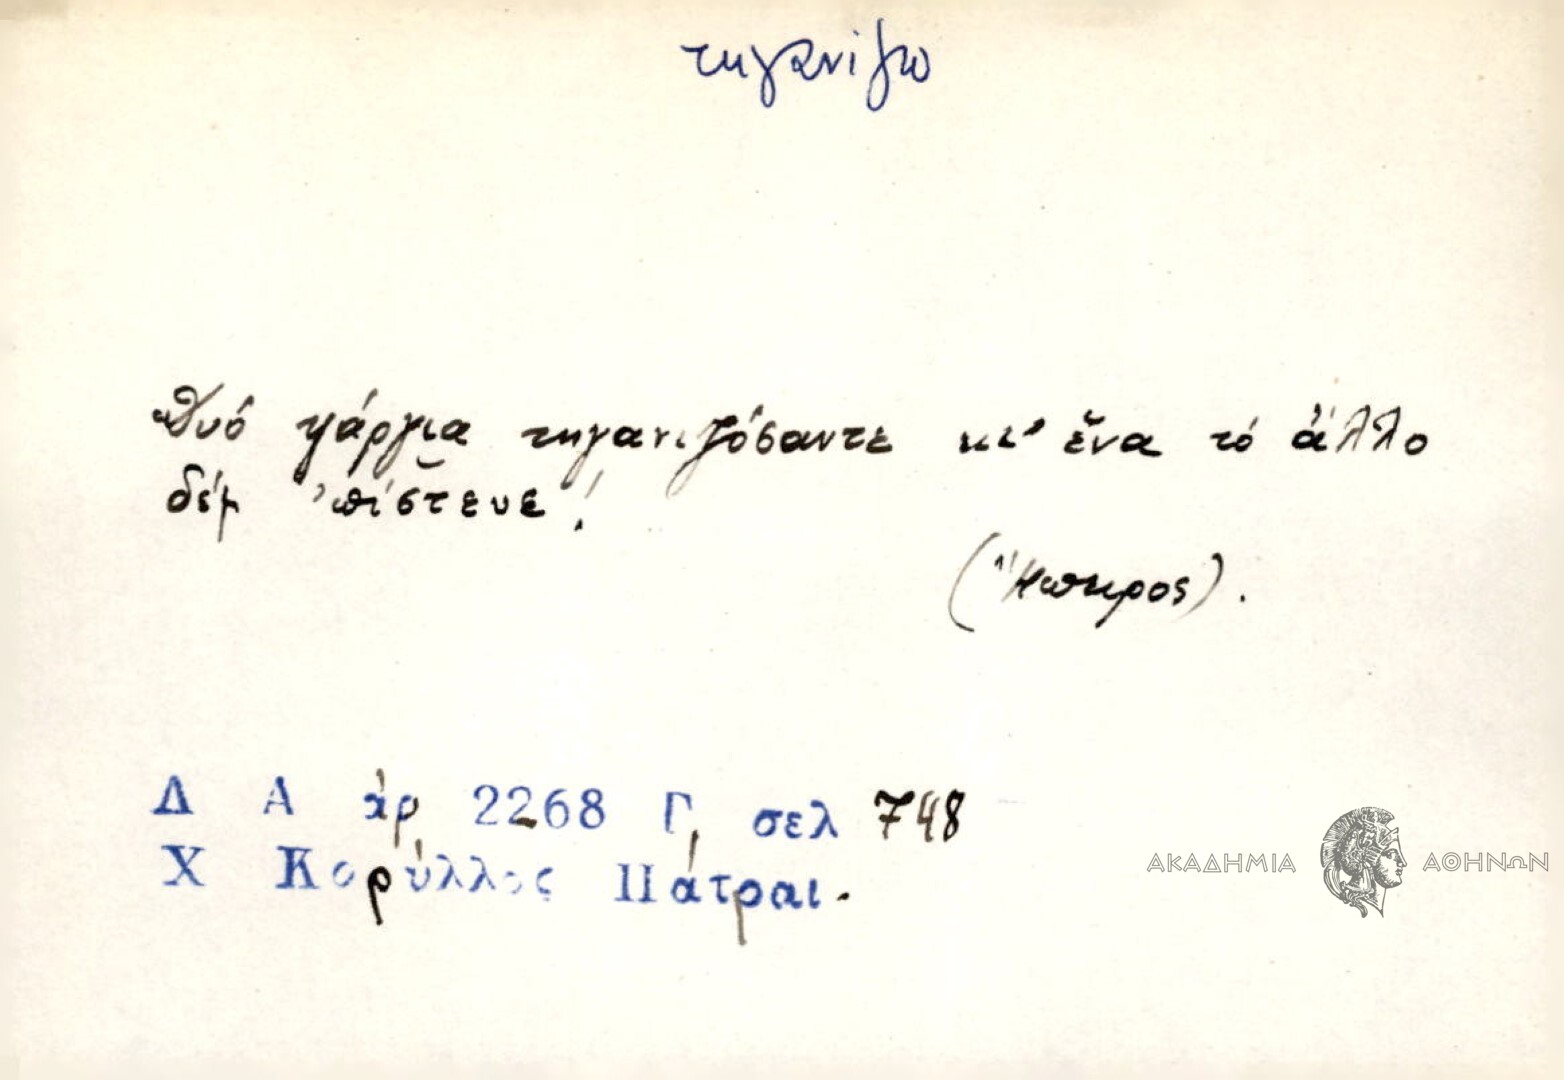 τηγανίζω
Δυό ψάργια τηγανιζόσαντε κι' ἕνα τό ἄλλο
δέμ 'πίστευε!
(Ἤπειρος).
Δ Α ἀρ 2268 Γ, σελ 748
Χ Κορύλλος Πάτραι.
ΑΚΑΔΗΜΙΑ ΑΘΗΝΩΝ